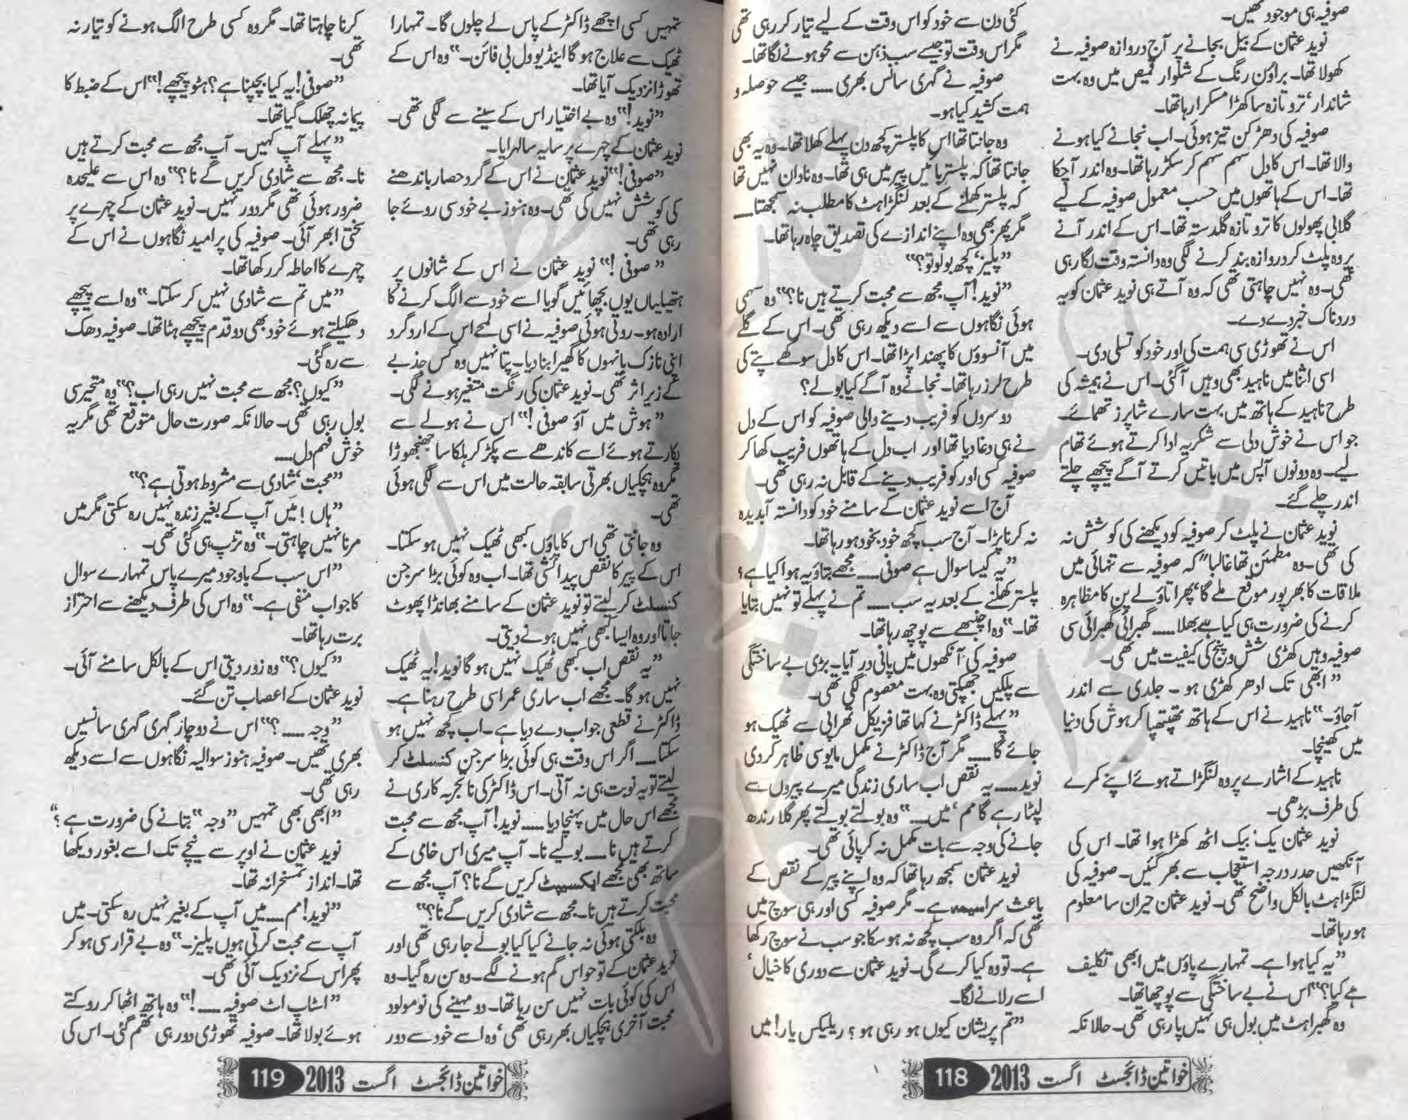 صوفیہ ہی موجود تھیں۔
نوید عثمان کے بیل بجانے پر آج دروازہ صوفیہ نے
کھولا تھا۔ براؤن رنگ کے شلوار قمیص میں وہ بہت
شاندار، ترو تازہ سا کھڑا مسکرا رہا تھا۔
صوفیہ کی دھڑکن تیز ہوئی۔ اب نجانے کیا ہونے
والا تھا۔ اس کا دل سہم سہم کر سکڑ رہا تھا۔ وہ اندر آچکا
تھا۔ اس کے ہاتھوں میں حسب معمول صوفیہ کے لیے
گلابی پھولوں کا ترو تازہ گلدستہ تھا۔ اس کے اندر آنے
پر وہ پلٹ کر دروازہ بند کرنے لگی وہ دانستہ وقت لگا رہی
تھی۔ وہ نہیں چاہتی تھی کہ وہ آتے ہی نوید عثمان کو یہ
دردناک خبر دے دے۔
اس نے تھوڑی سی ہمت کی اور خود کو تسلی دی۔
اسی اثنا میں ناہید بھی وہیں آگئی۔ اس نے ہمیشہ کی
طرح ناہید کے ہاتھ میں بہت سارے شاپرز تھمائے۔
جو اس نے خوش دلی سے شکریہ ادا کرتے ہوئے تھام
لیے۔ وہ دونوں آپس میں باتیں کرتے آگے پیچھے چلتے
اندر چلے گئے۔
نوید عثمان نے پلٹ کر صوفیہ کو دیکھنے کی کوشش نہ
کی تھی۔ وہ مطمئن تھا غالباً کہ صوفیہ سے تنہائی میں
ملاقات کا بھرپور موقع ملے گا، پھر اتاؤلے پن کا مظاہرہ
کرنے کی ضرورت ہی کیا ہے بھلا..... گھبرائی گھبرائی سی
صوفیہ وہیں کھڑی شش و پنج کی کیفیت میں تھی۔
"ابھی تک ادھر کھڑی ہو۔ جلدی سے اندر
آجاؤ۔" ناہید نے اس کے ہاتھ تھپتھپا کر ہوش کی دنیا
میں کھینچا۔
ناہید کے اشارے پر وہ لنگڑاتے ہوئے اپنے کمرے
کی طرف بڑھی۔
نوید عثمان یک بیک اٹھ کھڑا ہوا تھا۔ اس کی
آنکھیں حد درجہ استعجاب سے بھر گئیں۔ صوفیہ کی
لنگڑاہٹ بالکل واضح تھی۔ نوید عثمان حیران سا معلوم
ہو رہا تھا۔
"یہ کیا ہوا ہے۔ تمہارے پاؤں میں ابھی تکلیف
ہے کیا؟" اس نے بے ساختگی سے پوچھا تھا۔
وہ گھبراہٹ میں بول ہی نہیں پا رہی تھی۔ حالانکہ
کئی دن سے خود کو اس وقت کے لیے تیار کر رہی تھی
مگر اس وقت تو جیسے سب ذہن سے محو ہونے لگا تھا۔
صوفیہ نے گہری سانس بھری..... جیسے حوصلہ و
ہمت کشید کیا ہو۔
وہ جانتا تھا اس کا پلستر کچھ دن پہلے کھلا تھا۔ وہ یہ بھی
جانتا تھا کہ پلستر بائیں پیر میں ہی تھا۔ وہ نادان نہیں تھا
کہ پلستر کھلنے کے بعد لنگڑاہٹ کا مطلب نہ سمجھتا.....
مگر پھر بھی وہ اپنے اندازے کی تصدیق چاہ رہا تھا۔
"پلیز، کچھ بولو تو؟"
"نوید! آپ مجھ سے محبت کرتے ہیں نا؟" وہ سہمی
ہوئی نگاہوں سے اسے دیکھ رہی تھی۔ اس کے گلے
میں آنسوؤں کا پھندا پڑا تھا۔ اس کا دل سوکھے پتے کی
طرح لرز رہا تھا۔ نجانے وہ آگے کیا بولے؟
دوسروں کو فریب دینے والی صوفیہ کو اس کے دل
نے ہی دغا دیا تھا اور اب دل کے ہاتھوں فریب کھا کر
صوفیہ کسی اور کو فریب دینے کے قابل نہ رہی تھی۔
آج اسے نوید عثمان کے سامنے خود کو دانستہ آبدیدہ
نہ کرنا پڑا۔ آج سب کچھ خود بخود ہو رہا تھا۔
"یہ کیسا سوال ہے صوفی..... مجھے بتاؤ یہ ہوا کیا ہے؟
پلستر کھلنے کے بعد یہ سب..... تم نے پہلے تو نہیں بتایا
تھا۔" وہ اچنبھے سے پوچھ رہا تھا۔
صوفیہ کی آنکھوں میں پانی در آیا۔ بڑی بے ساختگی
سے پلکیں جھپکتی وہ بہت معصوم لگی تھی۔
"پہلے ڈاکٹر نے کہا تھا فزیکل تھراپی سے ٹھیک ہو
جائے گا..... مگر آج ڈاکٹر نے مکمل مایوسی ظاہر کر دی
نوید..... یہ نقص اب ساری زندگی میرے پیروں سے
لپٹا رہے گا مم، میں....." وہ بولتے بولتے پھر گلا رندھ
جانے کی وجہ سے بات مکمل نہ کر پائی تھی۔
نوید عثمان سمجھ رہا تھا کہ وہ اپنے پیر کے نقص کے
باعث سراسیمہ ہے۔ مگر صوفیہ کسی اور ہی سوچ میں
تھی کہ اگر وہ سب کچھ نہ ہو سکا جو سب نے سوچ رکھا
ہے۔ تو وہ کیا کرے گی۔ نوید عثمان سے دوری کا خیال،
اسے رلانے لگا۔
"تم پریشان کیوں ہو رہی ہو؟ ریلیکس یار! میں
خواتین ڈائجسٹ اگست 2013 118
تمہیں کسی اچھے ڈاکٹر کے پاس لے چلوں گا۔ تمہارا
ٹھیک سے علاج ہو گا اینڈ یو ول بی فائن۔" وہ اس کے
تھوڑا نزدیک آیا تھا۔
"نوید!" وہ بے اختیار اس کے سینے سے لگی تھی۔
نوید عثمان کے چہرے پر سایہ سا لہرایا۔
"صوفی!" نوید عثمان نے اس کے گرد حصار باندھنے
کی کوشش نہیں کی تھی۔ وہ ہنوز بے خود سی روئے جا
رہی تھی۔
"صوفی!" نوید عثمان نے اس کے شانوں پر
ہتھیلیاں یوں بچھائیں گویا اسے خود سے الگ کرنے کا
ارادہ ہو۔ روتی ہوئی صوفیہ نے اسی لمحے اس کے ارد گرد
اپنی نازک بانہوں کا گھیرا بنا دیا۔ پتا نہیں وہ کس جذبے
کے زیر اثر تھی۔ نوید عثمان کی رنگت متغیر ہونے لگی۔
"ہوش میں آؤ صوفی!" اس نے ہولے سے
پکارتے ہوئے اسے کاندھے سے پکڑ کر ہلکا سا جھنجھوڑا
مگر وہ ہچکیاں بھرتی سابقہ حالت میں اس سے لگی ہوئی
تھی۔
وہ جانتی تھی اس کا پاؤں کبھی ٹھیک نہیں ہو سکتا۔
اس کے پیر کا نقص پیدائشی تھا۔ اب وہ کوئی بڑا سرجن
کنسلٹ کر لیتے تو نوید عثمان کے سامنے بھانڈا پھوٹ
جاتا اور وہ ایسا کبھی نہیں ہونے دیتی۔
"یہ نقص اب کبھی ٹھیک نہیں ہو گا نوید! یہ ٹھیک
نہیں ہو گا۔ مجھے اب ساری عمر اسی طرح رہنا ہے۔
ڈاکٹر نے قطعی جواب دے دیا ہے۔ اب کچھ نہیں ہو
سکتا..... اگر اس وقت ہی کوئی بڑا سرجن کنسلٹ کر
لیتے تو یہ نوبت ہی نہ آتی۔ اس ڈاکٹر کی ناتجربہ کاری نے
مجھے اس حال میں پہنچا دیا..... نوید! آپ مجھ سے محبت
کرتے ہیں نا..... بولیے نا۔ آپ میری اس خامی کے
ساتھ بھی مجھے ایکسیپٹ کریں گے نا؟ آپ مجھ سے
محبت کرتے ہیں نا۔ مجھ سے شادی کریں گے نا؟"
وہ بلکتی ہوئی نہ جانے کیا کیا بولے جا رہی تھی اور
نوید عثمان کے تو حواس گم ہونے لگے۔ وہ سن رہ گیا۔ وہ
اس کی کوئی بات نہیں سن رہا تھا۔ دو مہینے کی نومولود
محبت آخری ہچکیاں بھر رہی تھی، وہ اسے خود سے دور
کرنا چاہتا تھا۔ مگر وہ کسی طرح الگ ہونے کو تیار نہ
تھی۔
"صوفی! یہ کیا بچپنا ہے؟ ہٹو پیچھے!" اس کے ضبط کا
پیمانہ چھلک گیا تھا۔
"پہلے آپ کہیں۔ آپ مجھ سے محبت کرتے ہیں
نا۔ مجھ سے شادی کریں گے نا؟" وہ اس سے علیحدہ
ضرور ہوئی تھی مگر دور نہیں۔ نوید عثمان کے چہرے پر
سختی ابھر آئی۔ صوفیہ کی پر امید نگاہوں نے اس کے
چہرے کا احاطہ کر رکھا تھا۔
"میں تم سے شادی نہیں کر سکتا۔" وہ اسے پیچھے
دھکیلتے ہوئے خود بھی دو قدم پیچھے ہٹا تھا۔ صوفیہ دھک
سے رہ گئی۔
"کیوں؟ مجھ سے محبت نہیں رہی اب؟" وہ متحیر سی
بول رہی تھی۔ حالانکہ صورت حال متوقع تھی مگر یہ
خوش فہم دل.....
"محبت، شادی سے مشروط ہوتی ہے؟"
"ہاں! میں آپ کے بغیر زندہ نہیں رہ سکتی مگر میں
مرنا نہیں چاہتی۔" وہ تڑپ ہی گئی تھی۔
"اس سب کے باوجود میرے پاس تمہارے سوال
کا جواب منفی ہے۔" وہ اس کی طرف دیکھنے سے احتراز
برت رہا تھا۔
"کیوں؟" وہ زور دیتی اس کے بالکل سامنے آئی۔
نوید عثمان کے اعصاب تن گئے۔
"وجہ.....؟" اس نے دو چار گہری گہری سانسیں
بھری تھیں۔ صوفیہ ہنوز سوالیہ نگاہوں سے اسے دیکھ
رہی تھی۔
"ابھی بھی تمہیں "وجہ" بتانے کی ضرورت ہے؟"
نوید عثمان نے اوپر سے نیچے تک اسے بغور دیکھا
تھا۔ انداز تمسخرانہ تھا۔
"نوید! مم..... میں آپ کے بغیر نہیں رہ سکتی۔ میں
آپ سے محبت کرتی ہوں پلیز۔" وہ بے قرار سی ہو کر
پھر اس کے نزدیک آئی تھی۔
"اسٹاپ اٹ صوفیہ.....!" وہ ہاتھ اٹھا کر روکتے
ہوئے بولا تھا۔ صوفیہ تھوڑی دور ہی تھم گئی۔ اس کی
خواتین ڈائجسٹ اگست 2013 119